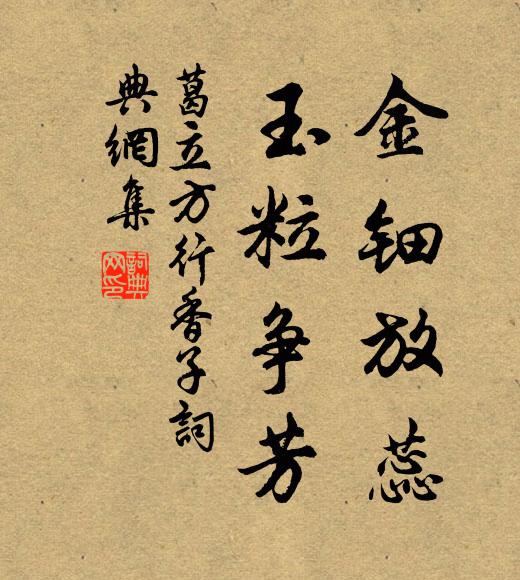 金钿放蕊
玉粒争芳
葛立方行香子詞
典網集
詞典網印